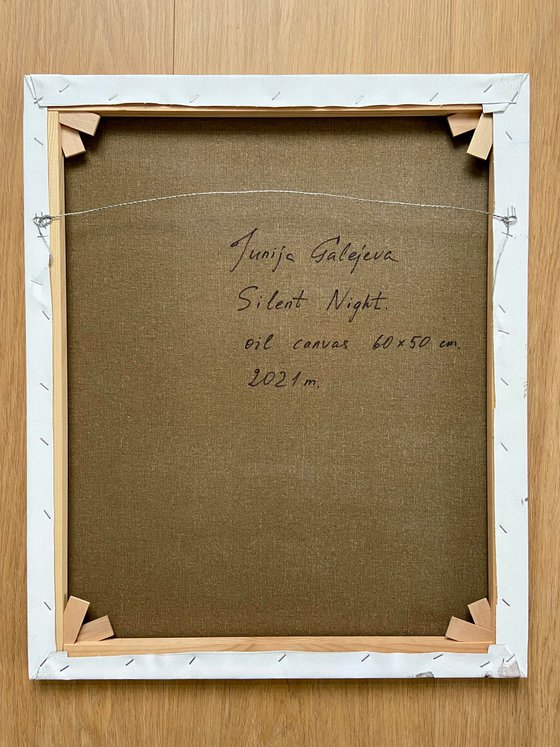 Junija Galejeva
Silent Night.
oil canvas 60x50 cm.
2021 m.